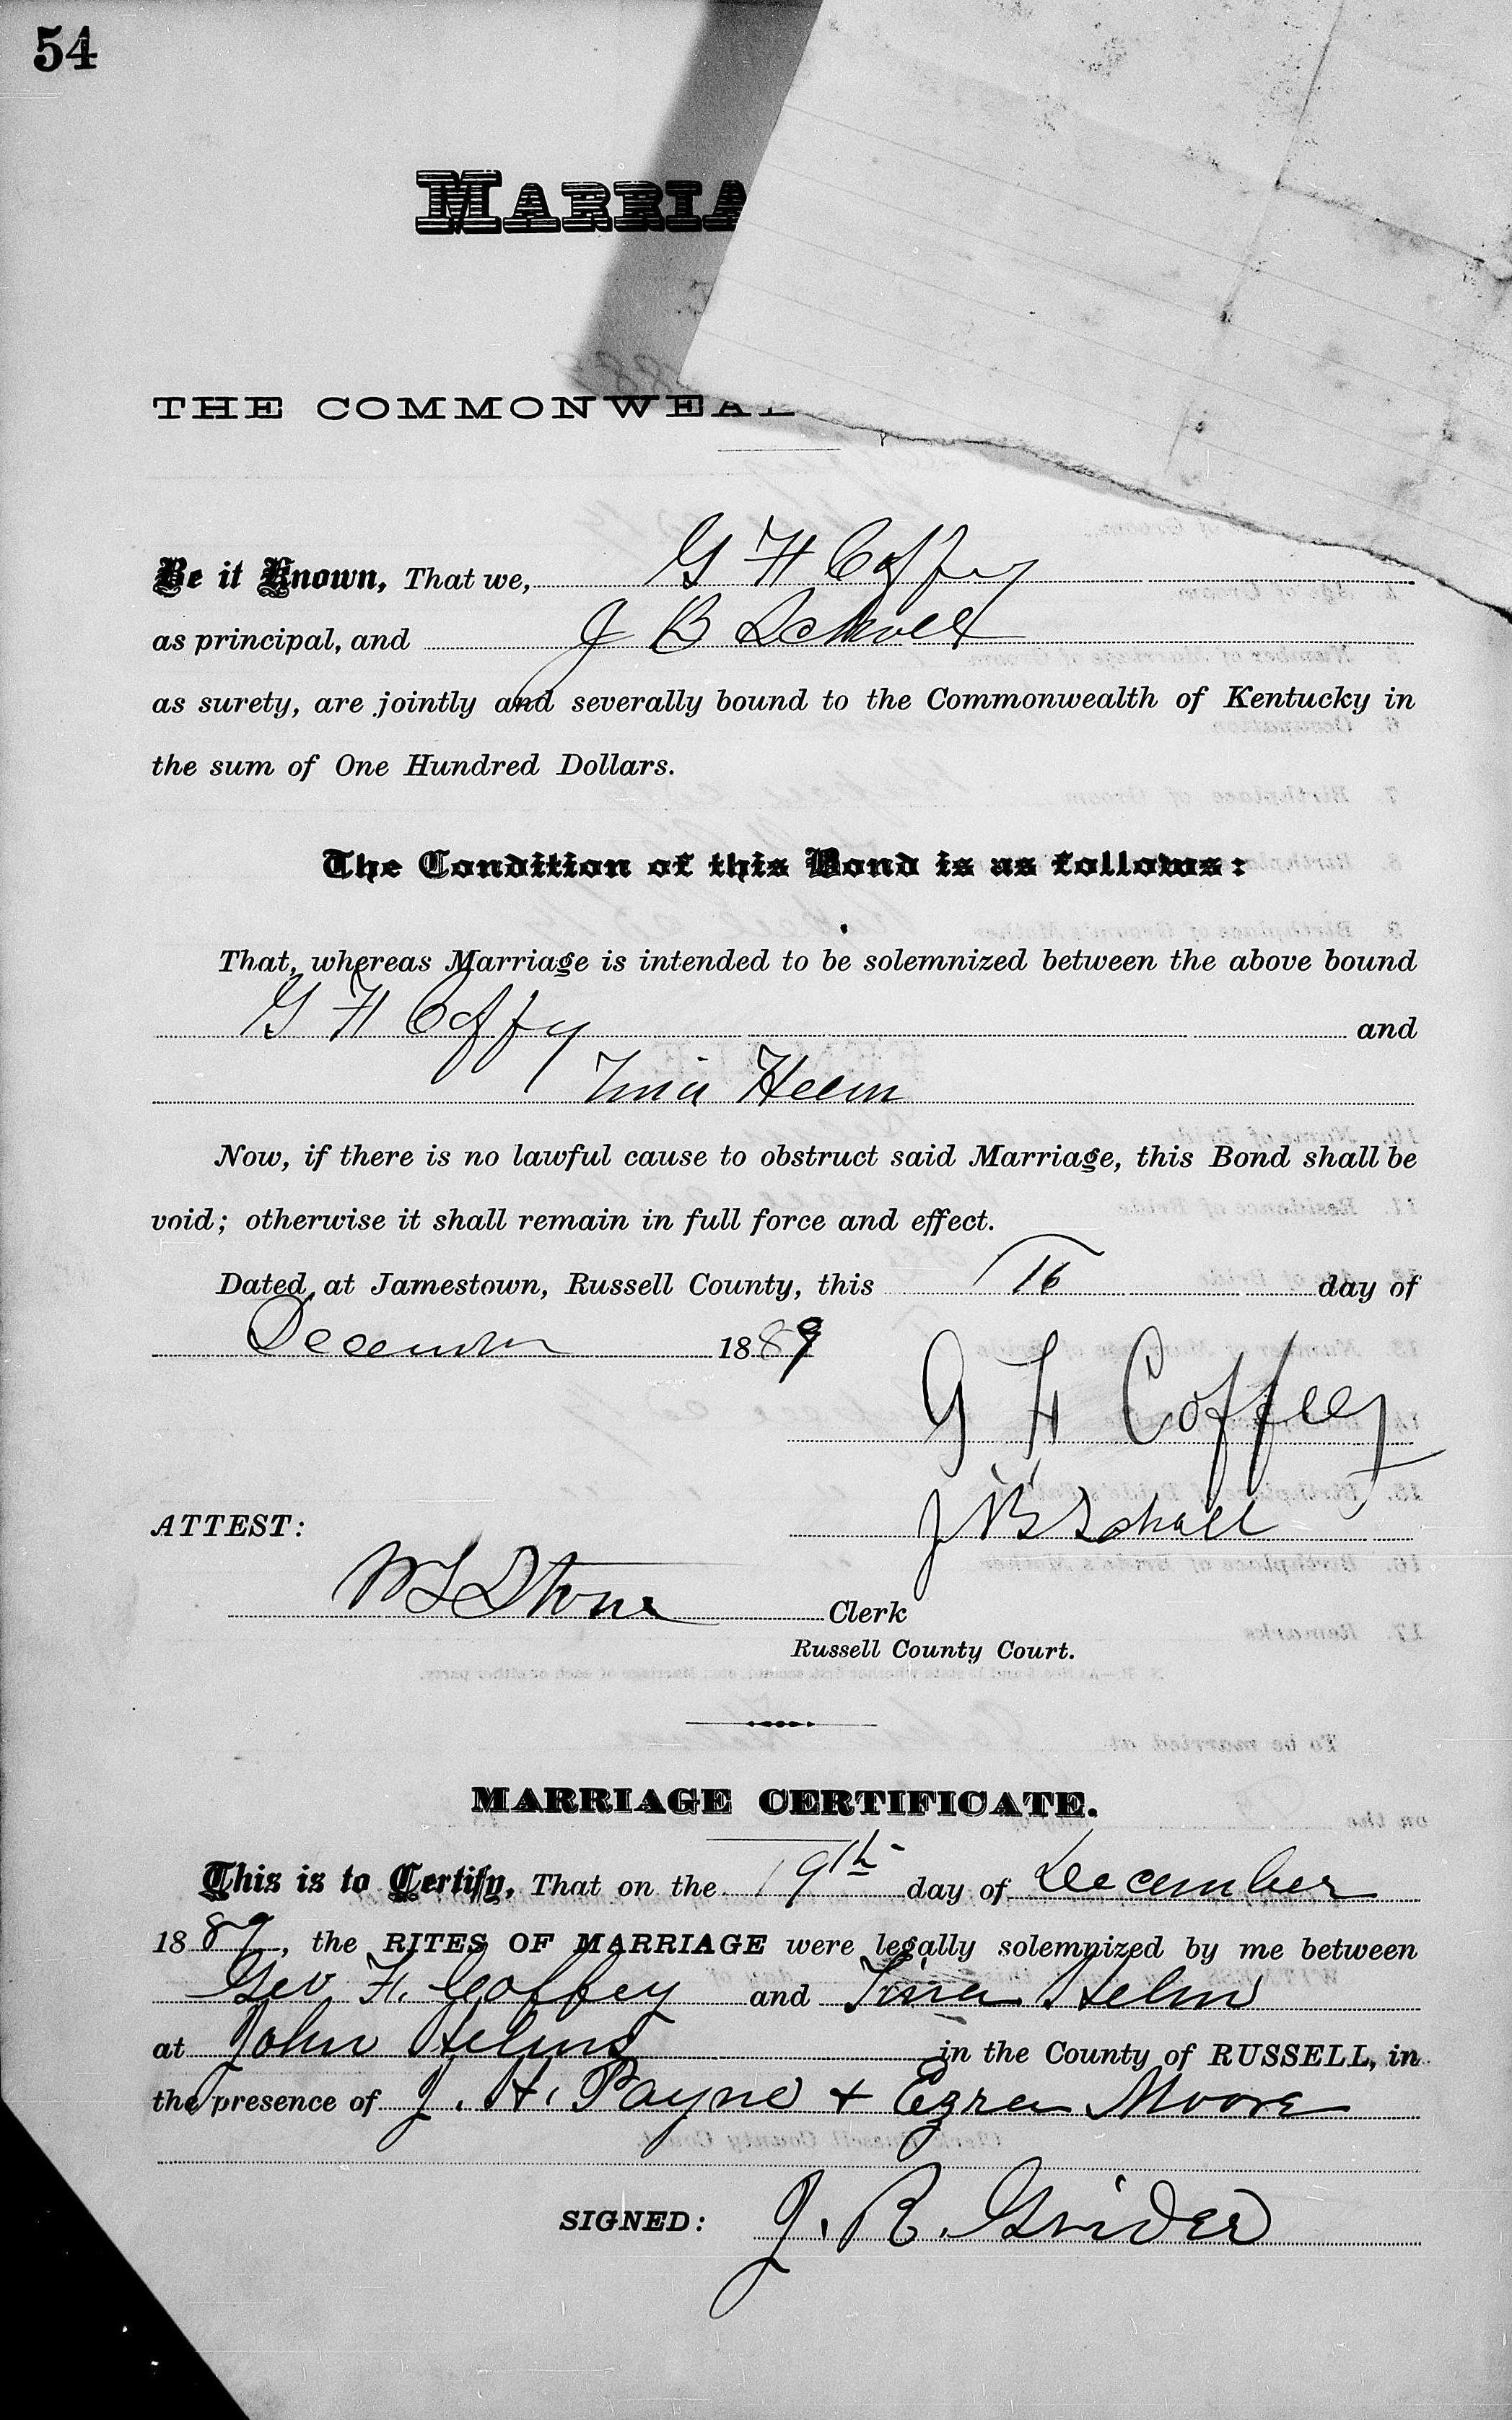 54
MARRIA
THE COMMONWEAL
Be it Known, That we, G H Coffey
as principal, and J B
as surety, are jointly and severally bound to the Commonwealth of Kentucky in
the sum of One Hundred Dollars.
The Condition of this Bond is as follows:
That, whereas Marriage is intended to be solemnized between the above bound
G H Coffy and
Tina Helm
Now, if there is no lawful cause to obstruct said Marriage, this Bond shall be
void; otherwise it shall remain in full force and effect.
Dated at Jamestown, Russell County, this 16 day of
December 1889
G H Coffey
ATTEST: J B Scholl
W S Stone Clerk
Russell County Court.
MARRIAGE CERTIFICATE.
This is to Certify, That on the 19th day of December
1889, the RITES OF MARRIAGE were legally solemnized by me between
Geo H. Coffey and Tina Helm
at John Helms in the County of RUSSELL, in
the presence of J. H. Payne + Ezra Moore
SIGNED: J. R. Grider